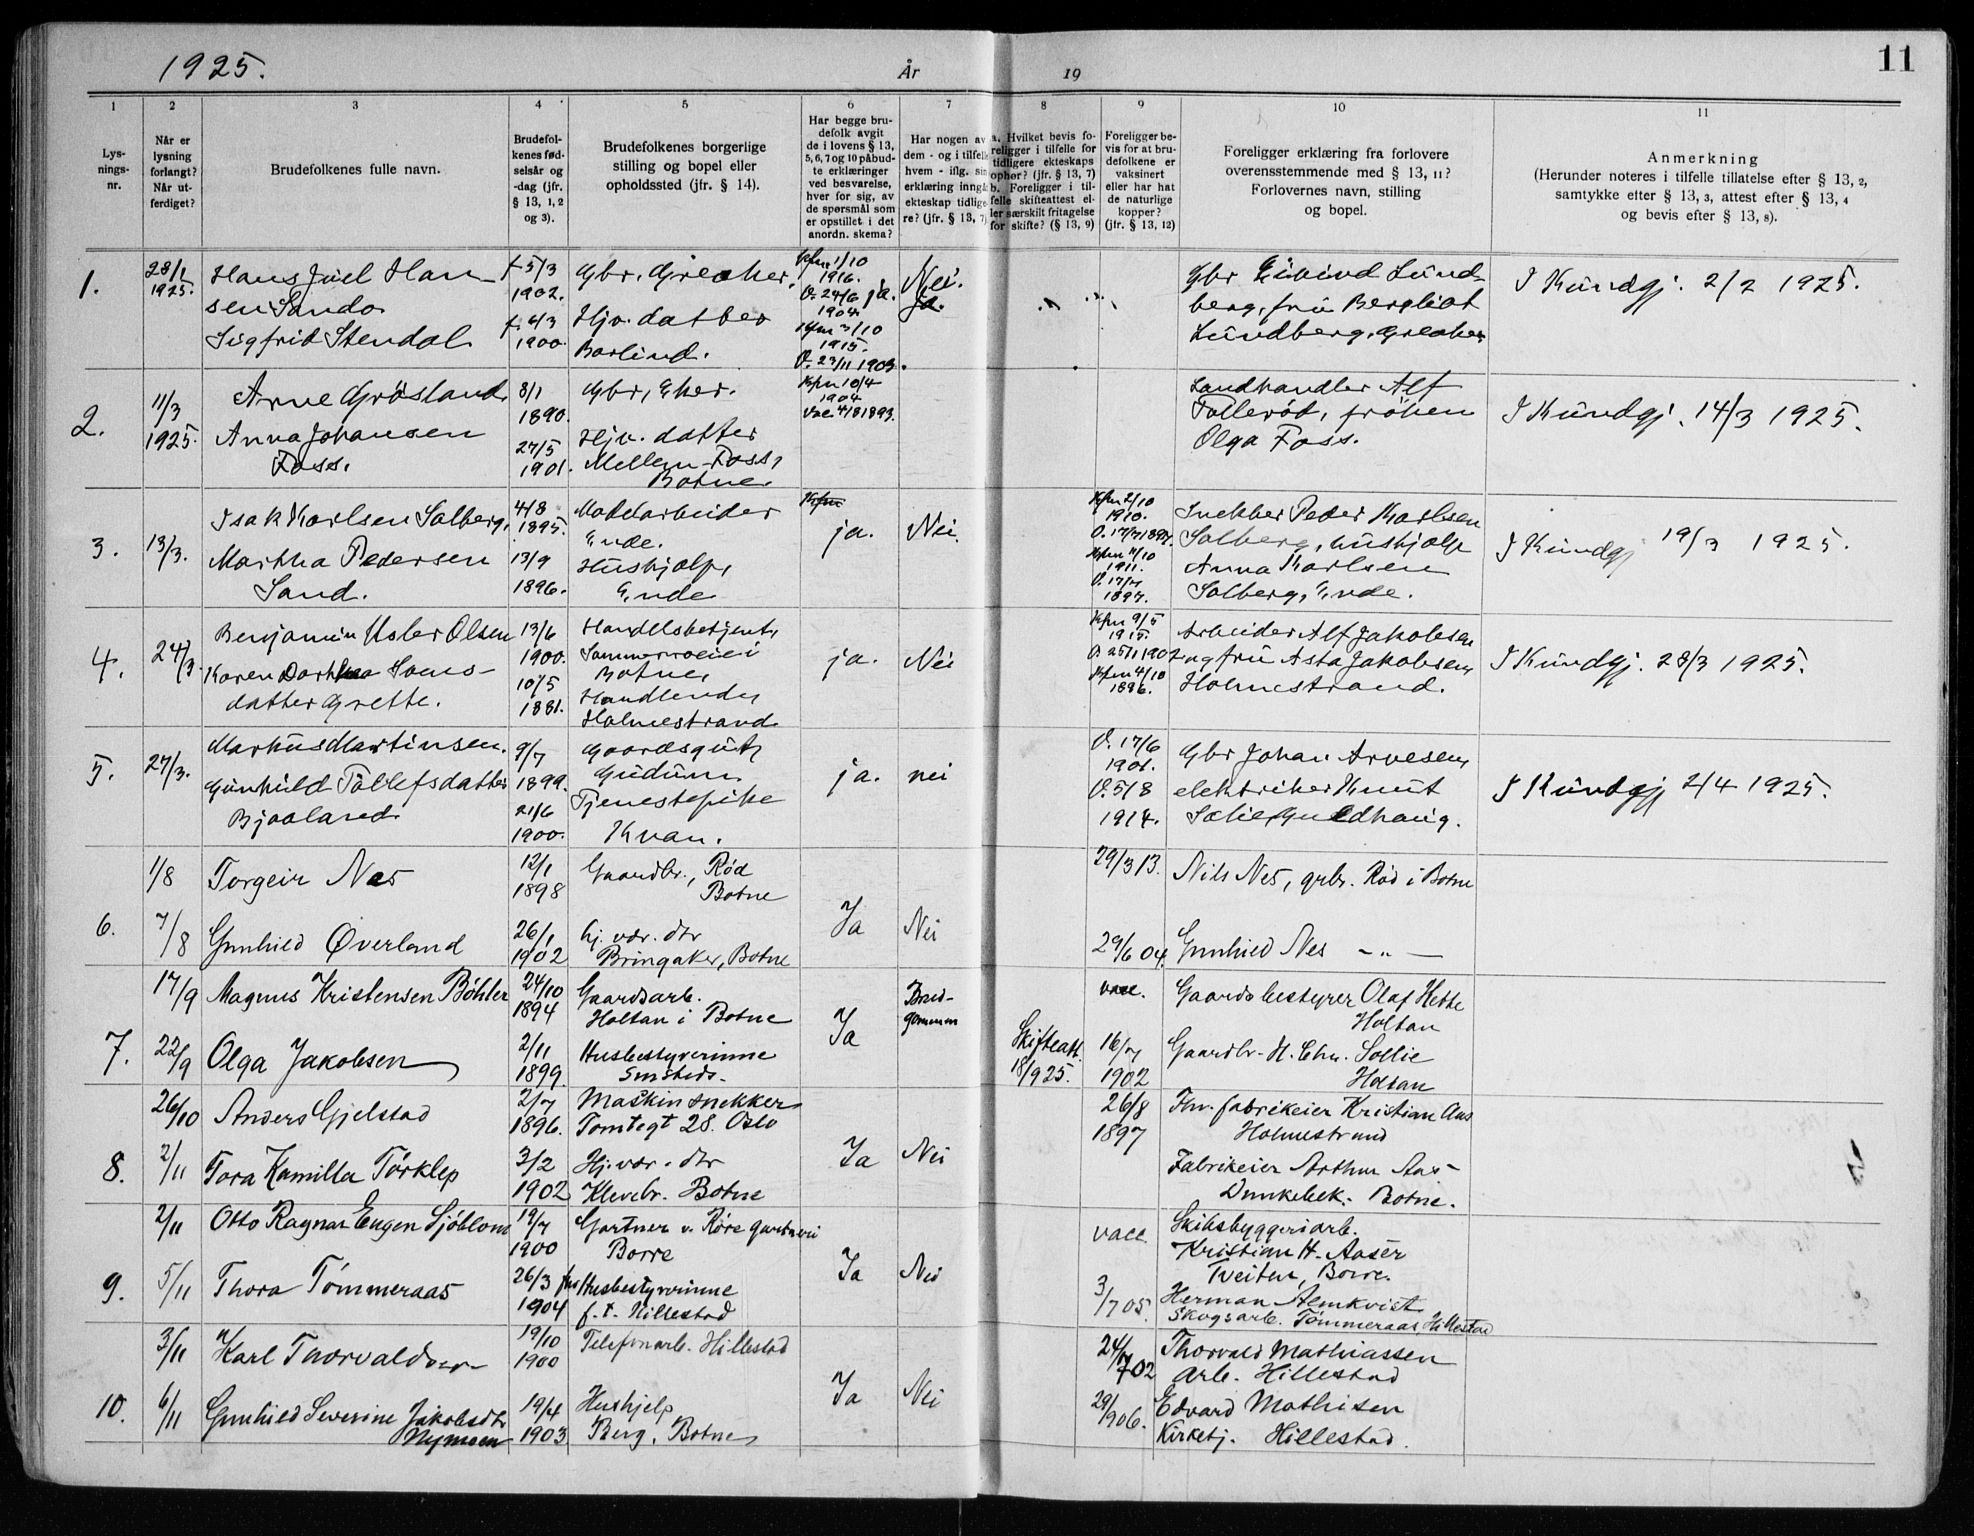 1925.
År
19
11
1
2
3
4
5
6
7
8
9
10
11
Lys-
nings-
nr.
Når er
lysning
forlangt?
Når ut-
ferdiget?
Brudefolkenes fulle navn.
Brudefol-
kenes fød-
selsår og
-dag (jfr.
§ 13, 1, 2
og 3).
Brudefolkenes borgerlige
stilling og bopel eller
opholdssted (jfr. § 14).
Har begge bru-
defolk avgit
de i lovens § 13,
5, 6, 7 og 10 påbud-
te erklæringer
ved besvarelse,
hver for sig, av
de spørsmål som
er opstillet i det
anordn. skema?
Har nogen av
dem - og i tilfelle
hvem - iflg. sin
erklæring inngåt
ekteskap tidlige-
re? (jfr. § 13, 7)
a. Hvilket bevis fo-
religger i tilfelle for
tidligere ekteskaps
ophør? (jfr. § 13, 7)
b. Foreligger i til-
felle skifteattest el-
ler særskilt fritagelse
for skifte? (§ 13, 9)
Foreligger be-
vis for at bru-
defolkene er
vaksinert
eller har hat
de naturlige
kopper?
(jfr. § 13, 12)
Foreligger erklæring fra forlovere
overensstemmende med § 13, 11?
Forlovernes navn, stilling
og bopel.
Anmerkning
(Herunder noteres i tilfelle tillatelse efter § 13, 2,
samtykke etter § 13, 3, attest efter § 13, 4
og bevis efter § 13, 8).
1.
28/1
1925.
Hans Juel Han
sen Sando
Sigfrid Stendal
f 5/3
1902.
f. 6/3
1900.
Gbr. Greaker,
Hjv. datter
Borlind.
Kfm 1/10
1916.
V. 24/6 ja.
1904
Kfm 3/10
1915.
V. 23/11 1903.
Nei.
Gbr Eivind Lund-
berg, fru Bergliot
Lundberg, Greaker
I Kundgj. 2/2 1925.
2.
11/3
1925.
Arne Grösland,
Anna Johansen
Foss.
8/1
1890.
27/5
1901.
Gbr, Eker.
Hjv. datter
Mellem-Foss,
Botne
Kfm 10/4
1904
Vac. 4/8 1893.
Landhandler Alf
Tollerød, frøken
Olga Foss.
I Kundgj. 14/3 1925.
3.
13/3.
Isak Karlsen Solberg,
Martha Pedersen
Sand.
4/8
1895.
13/9
1896.
Møbelarbeider
Ende.
Hushjælp,
Ende
Kfm
ja.
Nei.
Kfm 2/10
1910.
V. 17/7 1897.
Kfm 11/10
1911.
V. 17/7
1897.
Snekker Peder Karlsen
Solberg, hushjælp
Anna Karlsen
Solberg, Ende.
I Kundgj 19/3 1925.
4.
24/3.
Benjamin Usler Olsen
Karen Dorthea Hans-
datter Grette.
13/6
1900.
10/5
1881.
Handelsbetjent,
Sommerroen i
Botne,
Handlende,
Holmestrand
ja.
Nei
Kfm 9/5
1915.
V. 25/1 1902
Kfm 4/10
1896.
Arbeider Alf Jakobsen
og fru Asta Jakobsen,
Holmestrand.
I Kundgj. 28/3 1925.
5.
27/3.
Markus Martinsen.
Gunhild Tollefsdatter
Bjaaland
9/7
1899.
21/6
1900.
Gaardsgut,
Gudum
Tjenestepike
Kvan.
ja.
nei
V. 17/6
1901.
V. 5/8
1914.
Gbr Johan Arvesen,
elektriker Knut
Sælie, Guldhaug.
I Kundgj 2/4 1925.
6.
1/8
7/8
Torgeir Nes
Gunhild Øverland
12/1
1898
26/1
1902
Gaardbr., Rød
Botne
hj. vær. dtr
Bringaker, Botne
Ja
Nei
29/3 13.
29/6 04.
Nils Nes, grbr. Rød i Botne
Gunhild Nes -"-
7.
17/9
22/9
Magnus Kristensen Bøhler
Olga Jakobsen
24/10
1894
2/11
1899.
Gaardsarb.
Holtan i Botne
Husbestyrerinne
Smsteds.
Ja
Brud-
gommen
Skifteatt.
18/9 25.
vacc.
16/7
1902
Gaardsbestyrer Olaf Hette
Holtan
Gaardbr. H. Chr. Sollie
Holtan
8.
26/10
2/11
Anders Gjelstad
Tora Kamilla Tørklep
2/7
1896.
3/2
1902
Maskinsnekker
Tomtegt 28. Oslo
Hj. vær. dtr
Klevebr. Botne
Ja
Nei
26/8
1897
Fhv. fabrikeier Kristian Aas
Holmestrand
Fabrikeier Arthur Aas
Dunkebek. Botne.
9.
2/11
5/11
Otto Ragnar Eugen Sjöblom
Thora Tømmeraas
19/7
1900
26/3
1904
Gartner v. Røre gartneri
Borre
Husbestyrerinne
f. t. Hillestad
Ja
Nei
vacc.
3/7 05.
Skibsbyggeriarb.
Kristian H. Aasér
Tveiten, Borre.
Herman Almkvist
Skogsarb. Tømmeraas, Hillestad
10.
3/11
6/11
Karl Thorvaldsen
Gunhild Severine Jakobsdtr
Nymoen
19/10
1900
19/4
1903
Telefonarb. Hillestad
Hushjelp
Berg, Botne
Ja
Nei
24/7 02
29/9 06.
Thorvald Mathiassen
Arb. Hillestad
Edvard Mathisen
Kirketj. Hillestad.